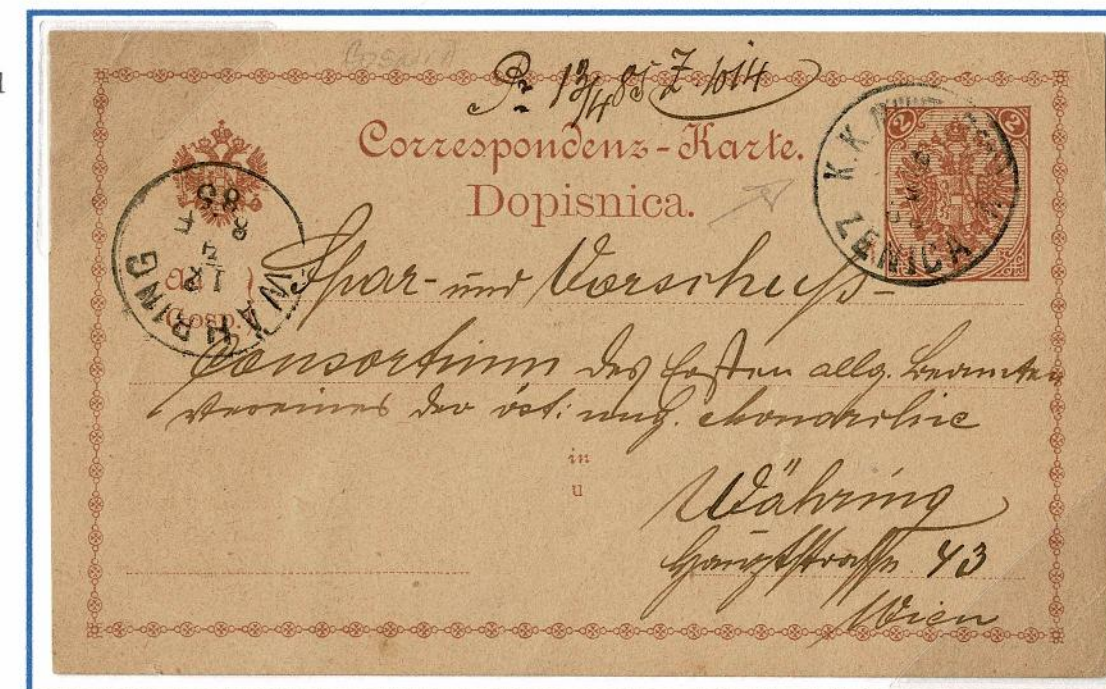 BOSNIA
Pr 13/4 85 Z. 1014
Correspondenz-Karte.
Dopisnica.
2 2
K.K.
ZENICA
WÄHRING
12
4
8 F
85
An
(Gosp.)
Spar- und Vorschuß-
Consortium des Ersten allg. Beamten
Vereines der öst: ung. Monarchie
in
u
Währing
Hauptstrasse 43
Wien